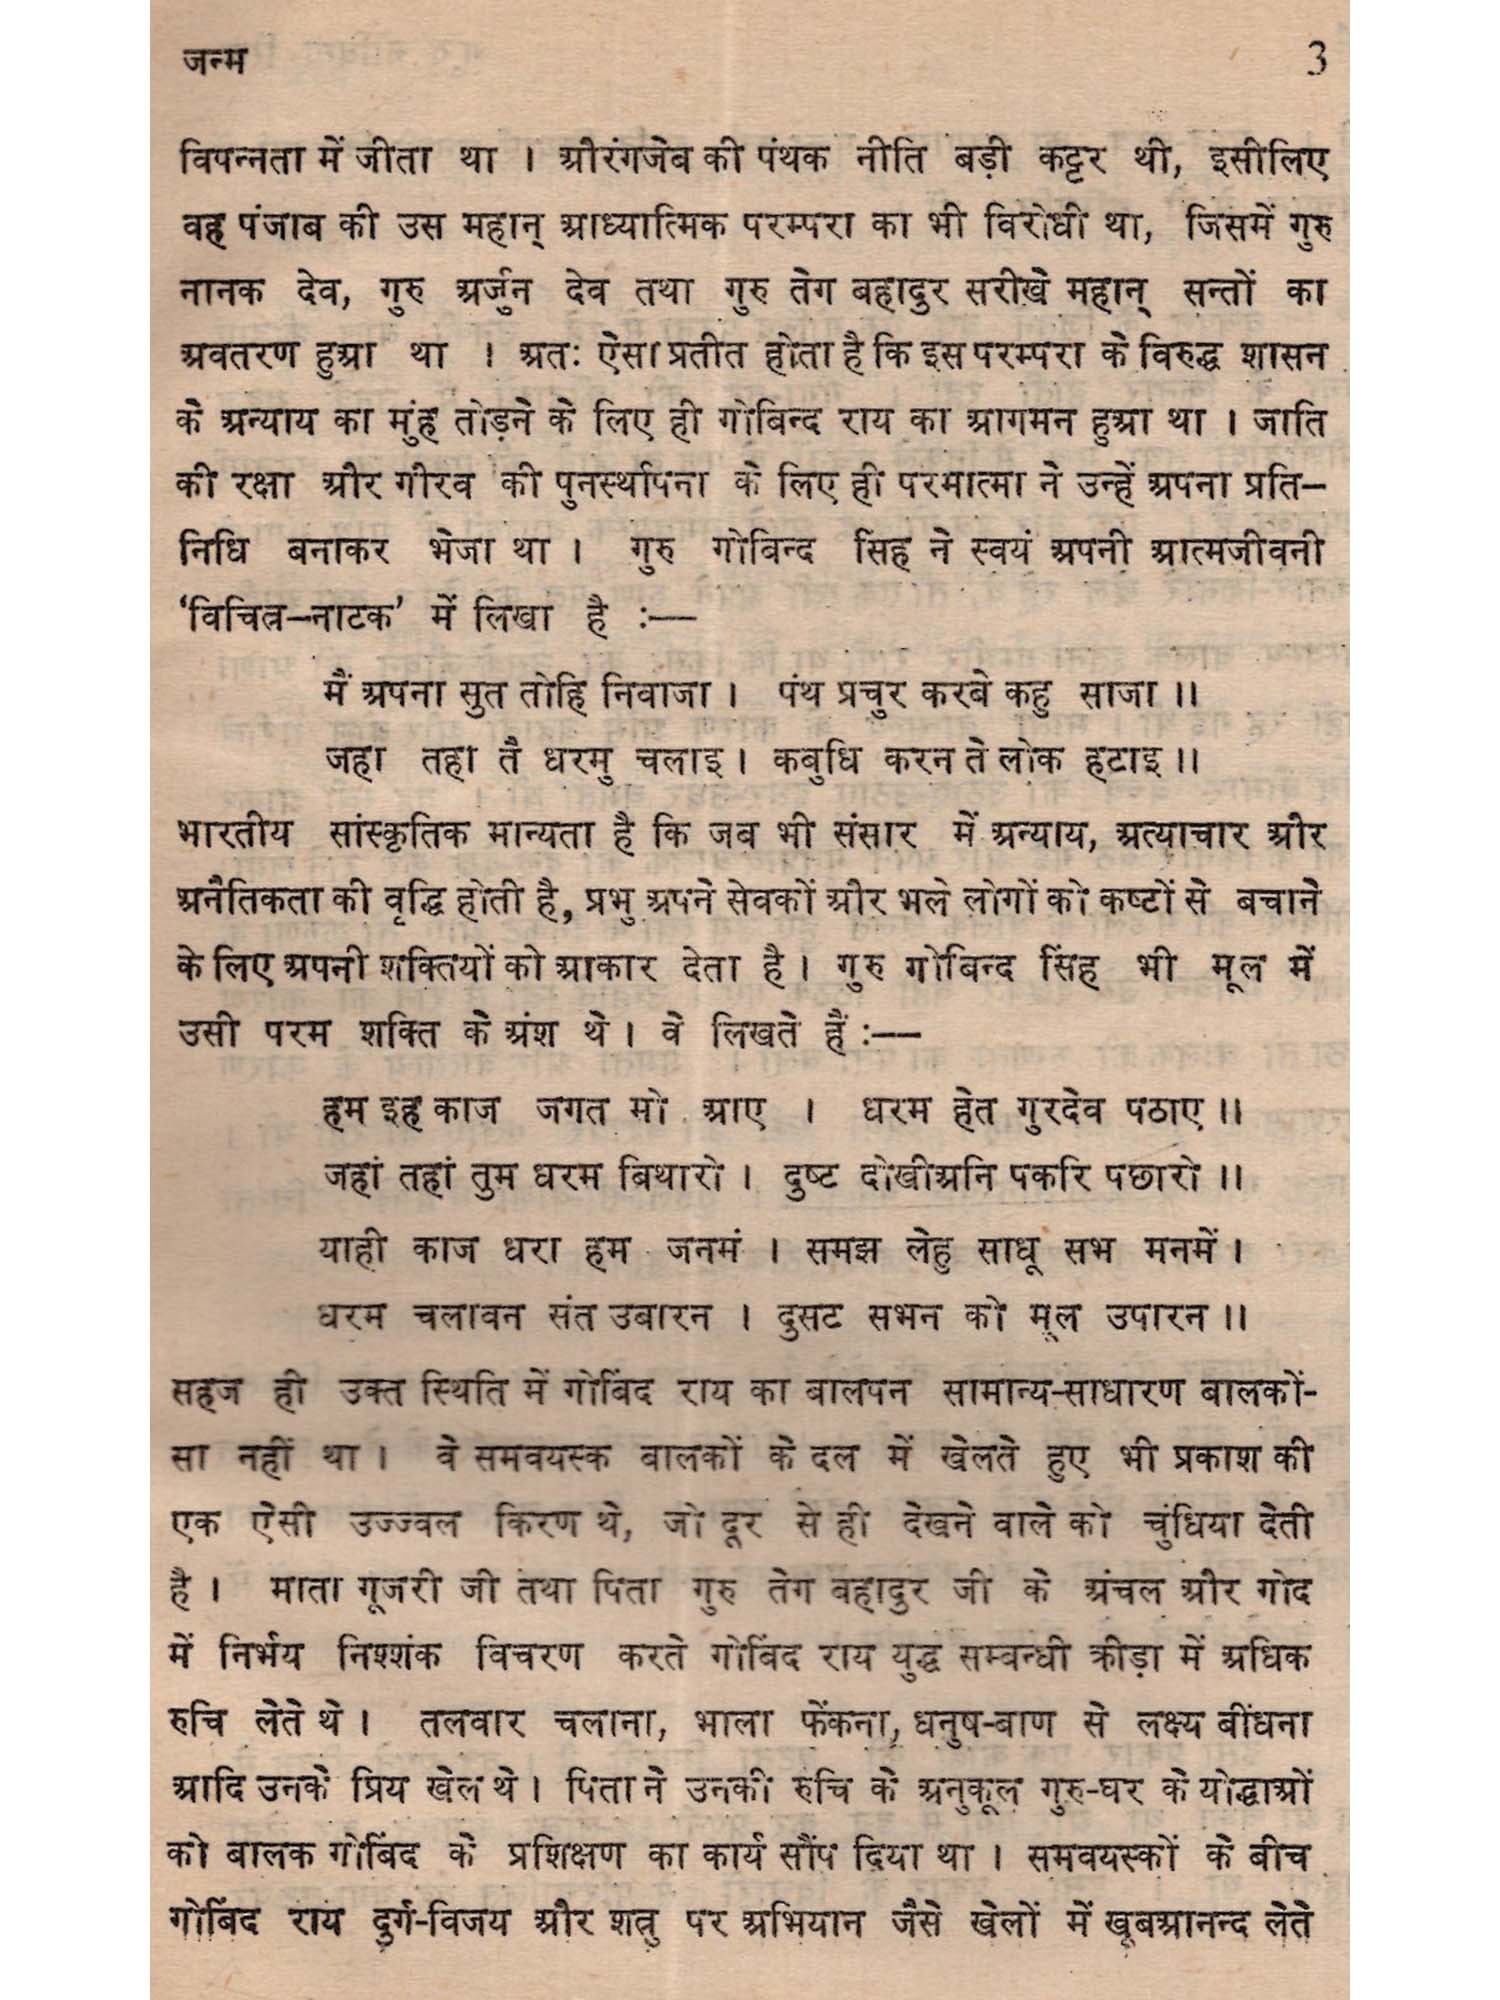 जन्म 3
विपन्नता में जीता था । औरंगजेब की पंथक नीति बड़ी कट्टर थी, इसीलिए
वह पंजाब की उस महान् आध्यात्मिक परम्परा का भी विरोधी था, जिसमें गुरु
नानक देव, गुरु अर्जुन देव तथा गुरु तेग बहादुर सरीखे महान् सन्तों का
अवतरण हुआ था । अतः ऐसा प्रतीत होता है कि इस परम्परा के विरुद्ध शासन
के अन्याय का मुंह तोड़ने के लिए ही गोबिन्द राय का आगमन हुआ था । जाति
की रक्षा और गौरव की पुनर्स्थापना के लिए ही परमात्मा ने उन्हें अपना प्रति–
निधि बनाकर भेजा था । गुरु गोबिन्द सिंह ने स्वयं अपनी आत्मजीवनी
‘विचित्र–नाटक’ में लिखा है :—
मैं अपना सुत तोहि निवाजा । पंथ प्रचुर करबे कहु साजा ।।
जहा तहा तै धरमु चलाइ । कबुधि करन ते लोक हटाइ ।।
भारतीय सांस्कृतिक मान्यता है कि जब भी संसार में अन्याय, अत्याचार और
अनैतिकता की वृद्धि होती है, प्रभु अपने सेवकों और भले लोगों को कष्टों से बचाने
के लिए अपनी शक्तियों को आकार देता है । गुरु गोबिन्द सिंह भी मूल में
उसी परम शक्ति के अंश थे । वे लिखते हैं :—
हम इह काज जगत मो आए । धरम हेत गुरदेव पठाए ।।
जहां तहां तुम धरम बिथारो । दुष्ट दोखीअनि पकरि पछारो ।।
याही काज धरा हम जनमं । समझ लेहु साधू सभ मनमें ।
धरम चलावन संत उबारन । दुसट सभन को मूल उपारन ।।
सहज ही उक्त स्थिति में गोबिंद राय का बालपन सामान्य-साधारण बालकों-
सा नहीं था । वे समवयस्क बालकों के दल में खेलते हुए भी प्रकाश की
एक ऐसी उज्ज्वल किरण थे, जो दूर से ही देखने वाले को चुंधिया देती
है । माता गूजरी जी तथा पिता गुरु तेग बहादुर जी के अंचल और गोद
में निर्भय निश्शंक विचरण करते गोबिंद राय युद्ध सम्बन्धी क्रीड़ा में अधिक
रुचि लेते थे । तलवार चलाना, भाला फेंकना, धनुष-बाण से लक्ष्य बींधना
आदि उनके प्रिय खेल थे । पिता ने उनकी रुचि के अनुकूल गुरु-घर के योद्धाओं
को बालक गोबिंद के प्रशिक्षण का कार्य सौंप दिया था । समवयस्कों के बीच
गोबिंद राय दुर्ग-विजय और शत्रु पर अभियान जैसे खेलों में खूबआनन्द लेते